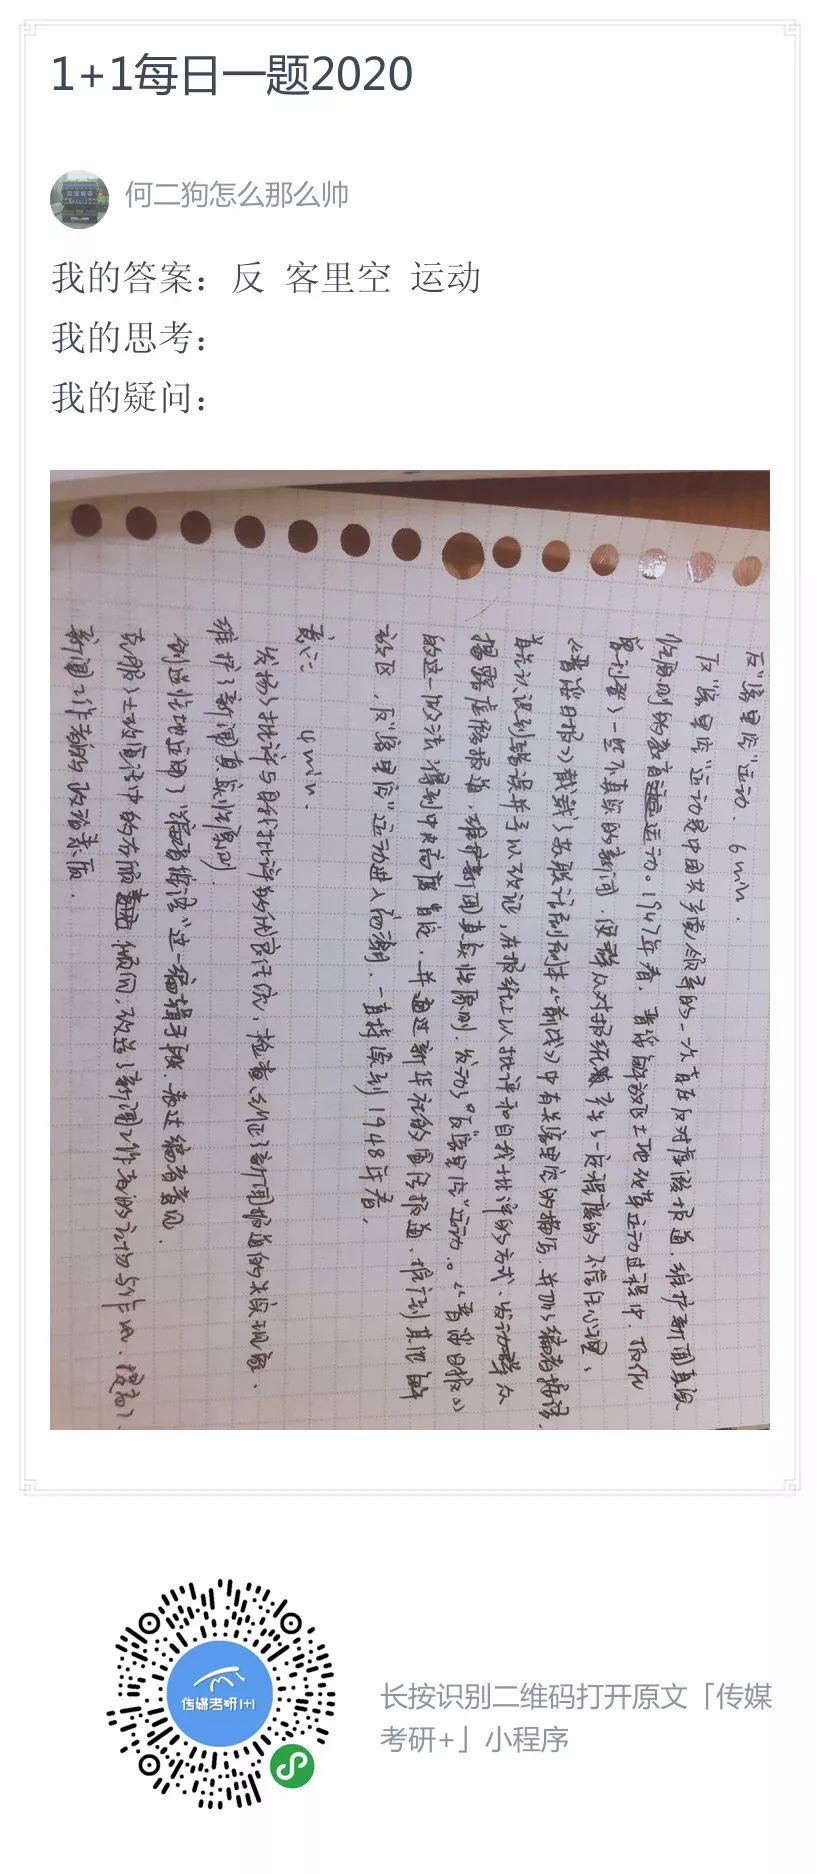 1+1每日一题2020
何二狗怎么那么帅
我的答案：反 客里空 运动
我的思考：
我的疑问：
反"客里空"运动. 6min.
反"客里空"运动是中国共产党领导的一次旨在反对虚假报道、维护新闻真实
性原则的教育运动。1947年春，晋绥解放区土地改革运动过程中，
一些不真实的新闻，使群众对报纸产生了一定程度的不信任心理，
《晋绥日报》载了苏联话剧剧本《前线》中有关客里空的描写，并加编者按语，
认识到错误并予以改正，在报纸上以批评和自我批评的方式、发动群众
揭露虚假报道，维护新闻真实性原则，发动了"反客里空"运动。《晋绥日报》
的这一做法得到中央高度肯定，并通过新华社的宣传报道，推行到其他解
放区，反"客里空"运动进入高潮，一直持续到1948年春，
意义： 4min.
发扬了批评与自我批评的优良作风，检查、纠正了新闻报道的失实现象，
维护了新闻真实性原则.
创造性地运用了"编者按语"这一编辑手段，表达编者意见.
克服了土改宣传中的右倾倾向，改造了新闻工作者的立场与作风，提高了
新闻工作者的政治素质.
传媒考研1+1
长按识别二维码打开原文「传媒
考研+」小程序